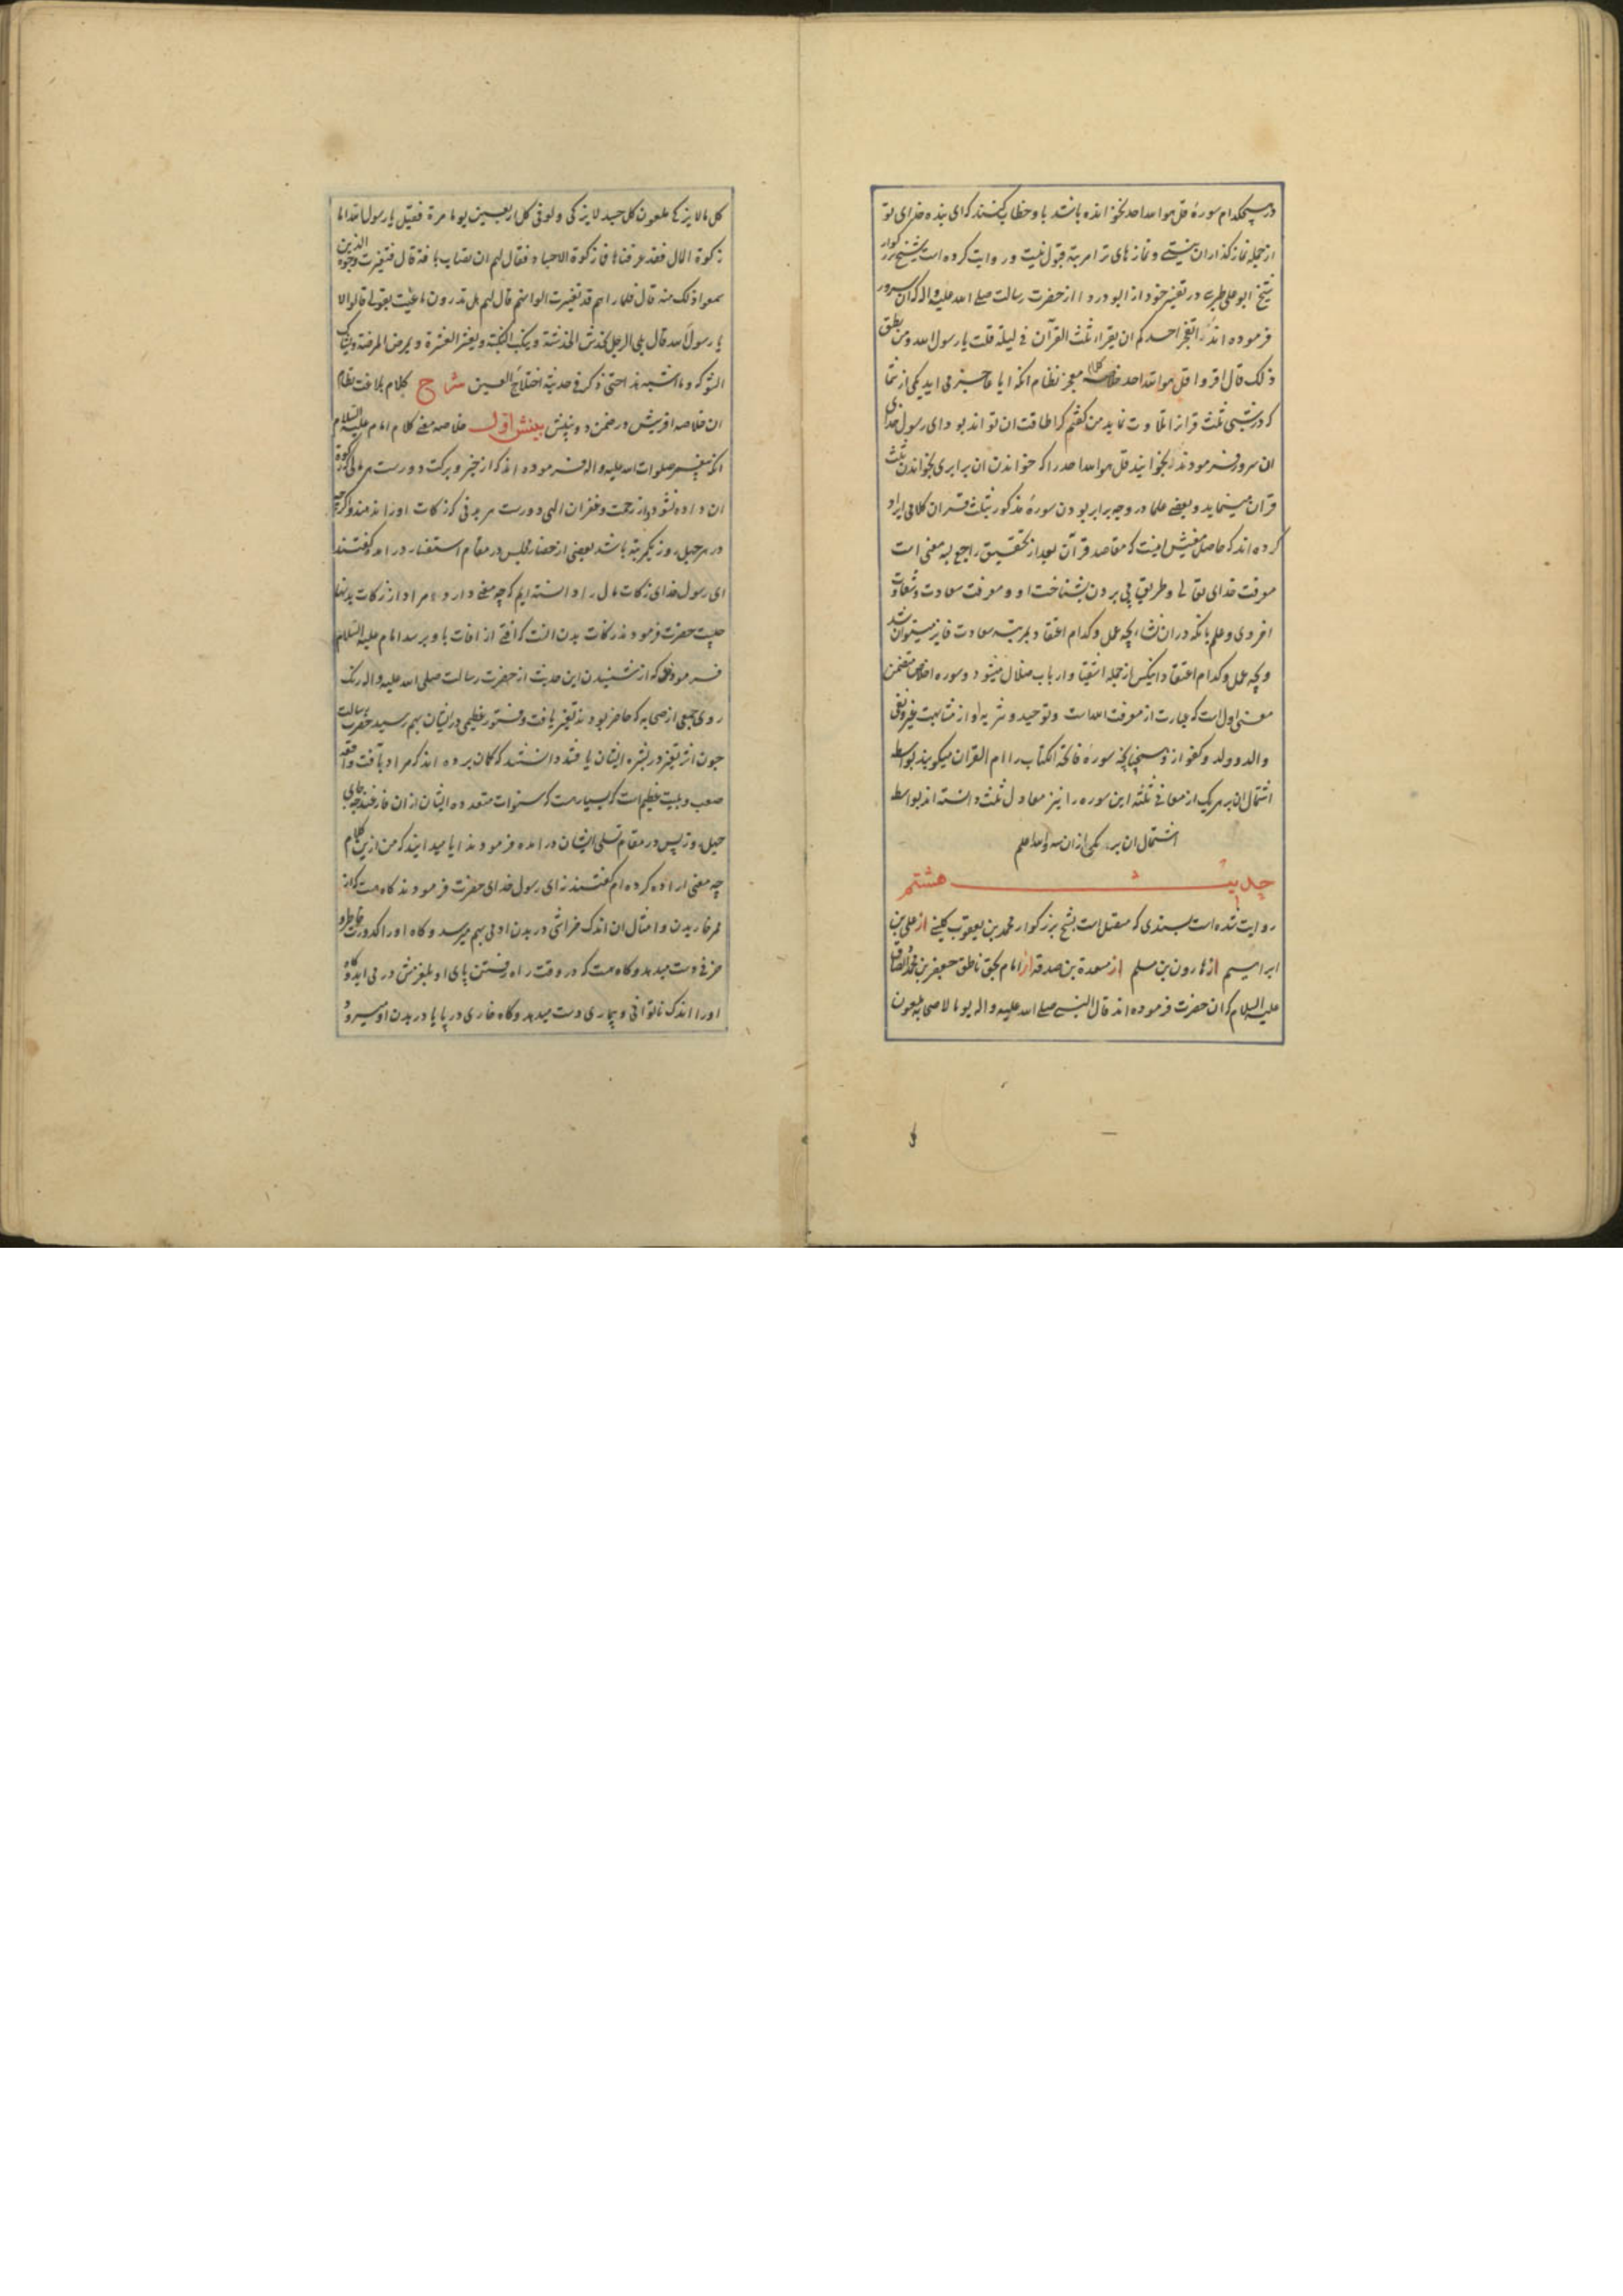 در هیچکدام سورهٔ قل هو الله احد نخوانده باشد باو خطاب کنند که ای بنده خدای تو
از جمله نماز گذاران نیستی و نماز های ترا مرتبهٔ قبول نیست و روایت کرده است شیخ بزرگوار
شیخ ابو علی طبرسی در تفسیر خود از ابو دردا از حضرت رسالت صلی الله علیه واله که آن سرور
فرموده اند ایعجز احدکم ان یقرا ثلث القرآن فی لیلة قلت یا رسول الله ومن یطق
ذلک قال اقروا قل هو الله احد خلاصه کلام معجز نظام انکه ایا عاجز می اید یکی از شما
که در شبی ثلث قرانرا تلاوت نماید من گفتم کرا طاقت ان تواند بود ای رسول خدای
ان سرور فرمودند بخوانید قل هو الله احد را که خواندن ان برابری بخواندن ثلث
قران مینماید و بعضی علما در وجه برابر بودن سورهٔ مذکور بثلث قران کلامی ایراد
کرده اند که حاصل معنیش اینست که مقاصد قرآن بعد از تحقیق راجع بسه معنی است
معرفت خدای تعالی و طریق پی بردن بشناخت او و معرفت سعادت و شقاوت
اخروی و علم بانکه دران نشاء بچه عمل و کدام اعتقاد بمرتبه سعادت فایز میتوان شد
و بچه عمل و کدام اعتقاد انکس از جمله اشقیا و ارباب ضلال میشود و سوره اخلاص متضمن
معنی اول است که عبارت از معرفت الله است و توحید و تنزیه او از مشابهت غیر و نفی
والد و ولد و کفو ازو همچنانچه سورهٔ فاتحة الکتاب را ام القران میکویند بواسطه
اشتمال ان بر هریک از معانی ثلثه این سوره را نیز معادل ثلث دانسته اند بواسطه
اشتمال ان بر یکی ازان سه والله اعلم
حدیث هشتم
روایت شده است بسندی که متصل است بشیخ بزرکوار محمد بن یعقوب کلینی از علی بن
ابراهیم از هارون بن مسلم از مسعدة بن صدقه از امام بحق ناطق جعفر بن محمد الصادق
علیه السلام که ان حضرت فرموده اند قال النبی صلی الله علیه واله یوما لاصحابه ملعون
کل مال لا یزکی ملعون کل جسد لا یزکی ولو فی کل اربعین یوما مرة فقیل یا رسول الله اما
زکوة المال فقد عرفناها فما زکوة الاجساد فقال لهم ان تصاب بافة قال فتغیرت وجوه الذین
سمعوا ذلک منه قال فلما راهم قد تغیرت الوانهم قال لهم هل تدرون ما عنیت بقولی قالوا لا
یا رسول الله قال بلی الرجل یخدش الخدشة وینکب النکبة ویعثر العثرة ویمرض المرضة ویشاک
الشوکة وما اشبه هذا حتی ذکر فی حدیثه اختلاج العین شرح کلام بلاغت نظام
ان خلاصه افرینش در ضمن دو بینش بینش اول خلاصه معنی کلام امام علیه السلام
انکه پیغمبر صلوات الله علیه واله فرموده اند که از خیر و برکت دورست هر مالی که زکوة
ان داده نشود و از رحمت و غفران الهی دورست هر بدنی که زکات اورا ندهند و اگرچه
در هر چهل روز یکمرتبه باشد بعضی از حضار مجلس در مقام استفسار در امده گفتند
ای رسول خدای زکات مال را دانسته ایم که چه معنی دارد اما مراد از زکات بدنها
چیست حضرت فرمودند زکات بدن انست که افتی از افات باو برسد امام علیه السلام
فرمودند که از شنیدن این حدیث از حضرت رسالت صلی الله علیه واله رنک
روی جمعی از صحابه که حاضر بودند تغیر یافت و فتور عظیمی در ایشان بهم رسید حضرت رسالت
چون اثر تغیر در بشره ایشان یافتند دانستند که کمان برده اند که مراد بآفت واقعه
صعب و بلیت عظیم است که بسیار هست که سنوات متعدده ایشان ازان فارغند چه جای
چهل روز پس در مقام تسلی ایشان در امده فرمودند ایا میدانید که من ازین کلام
چه معنی اراده کرده ام گفتند نه ای رسول خدای حضرت فرمودند کاه هست که از
ممر خاریدن و امثال ان اندک خراشی در بدن ادمی بهم میرسد و کاه اورا کدورت خاطر و
حزنی دست میدهد و کاه هست که در وقت راه رفتن پای او بلغزش در می اید و کاه
اورا اندک ناتوانی و بیماری دست میدهد و کاه خاری در پا یا در بدن او میرود